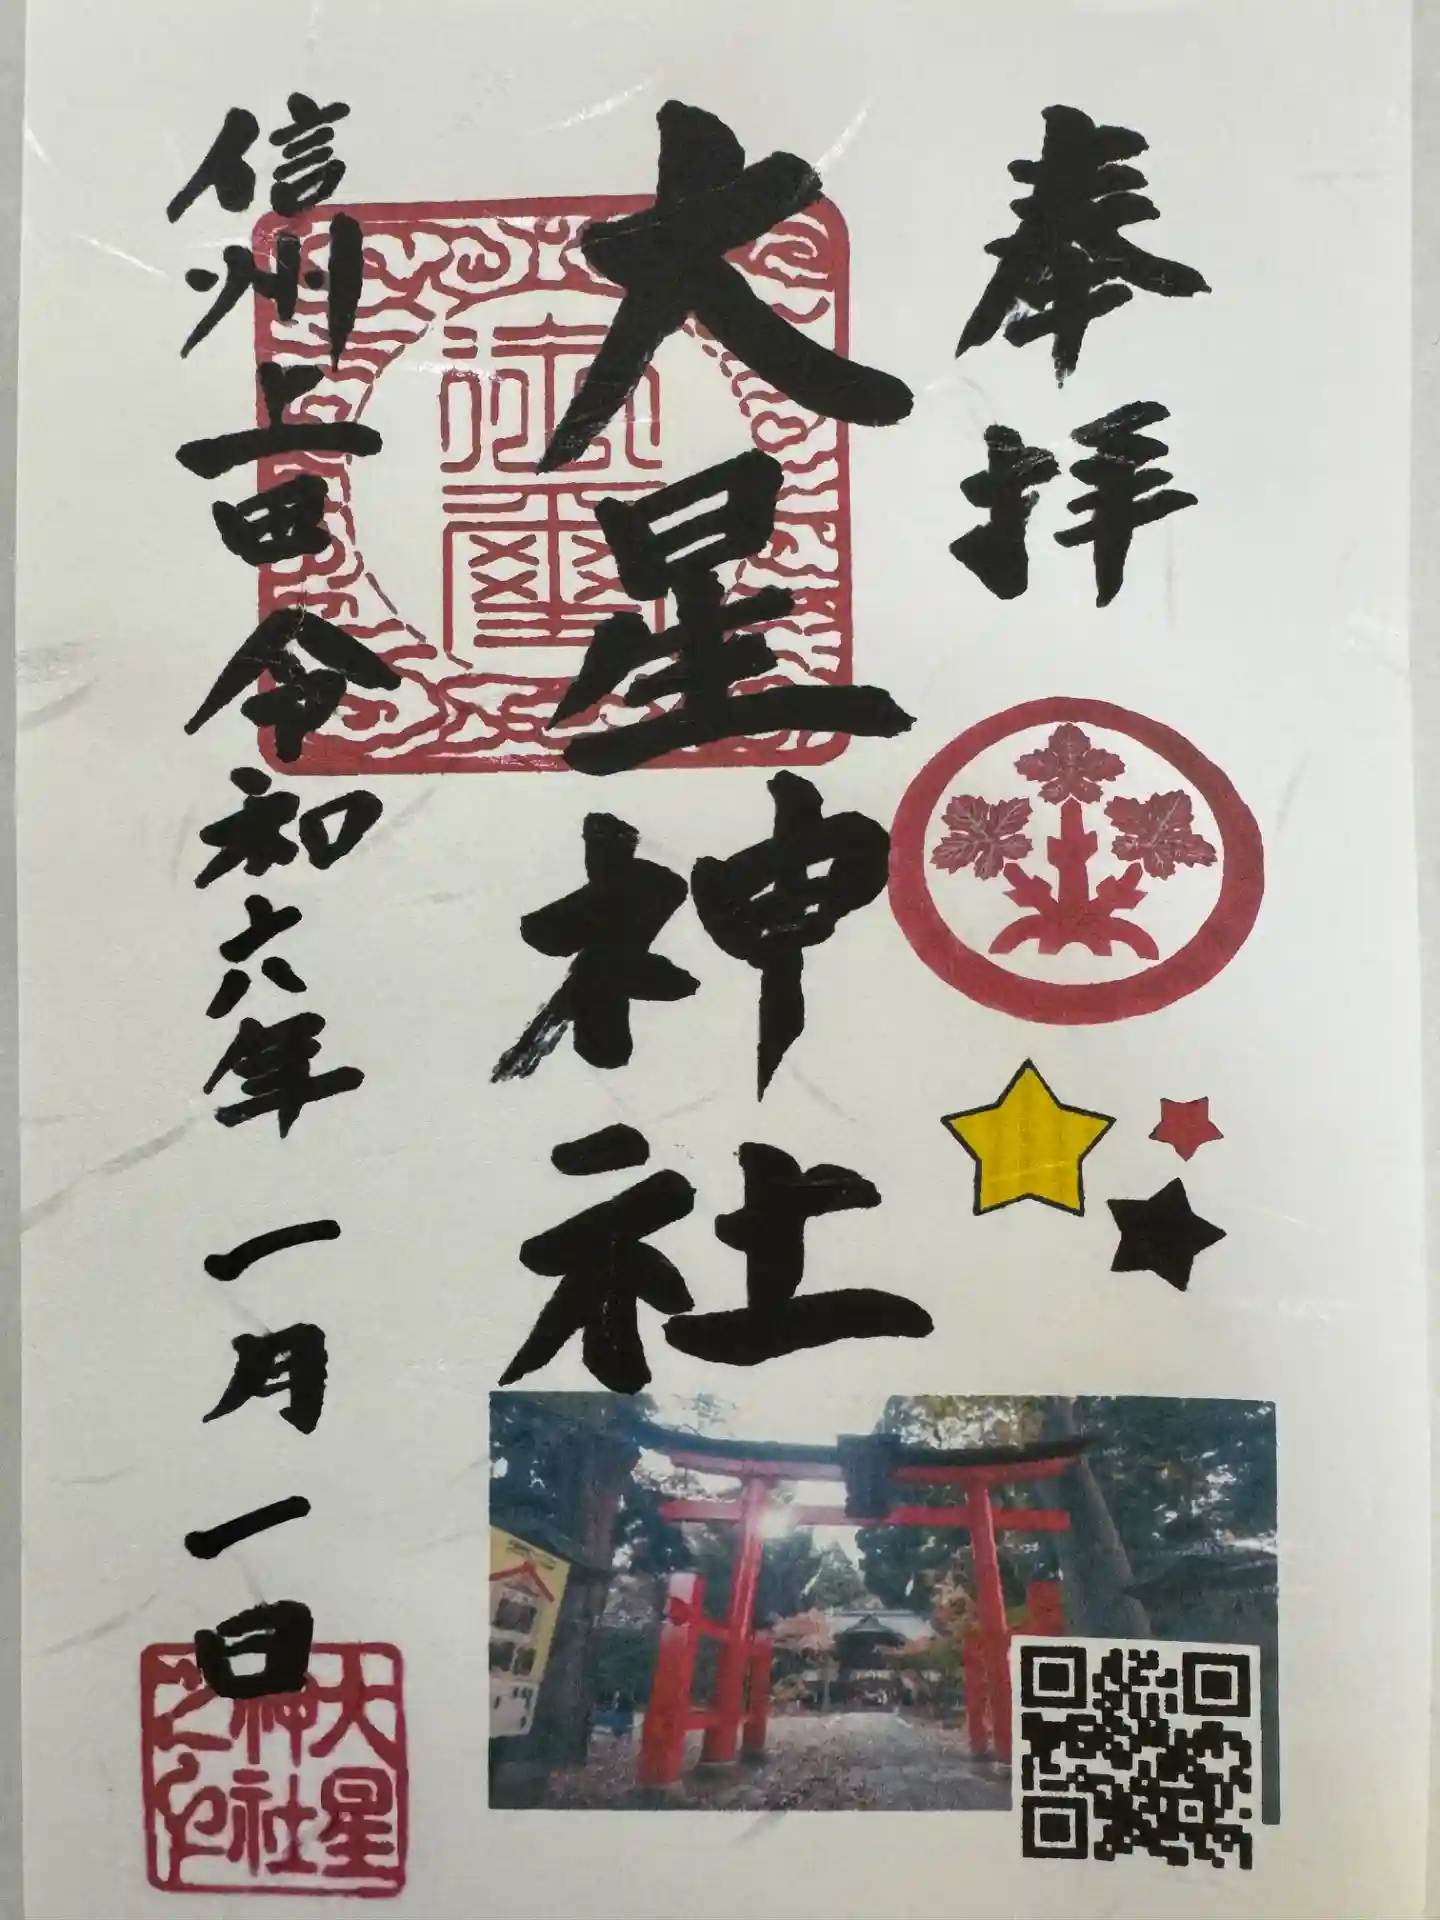 奉拝
大星神社
信州上田令和六年 一月 一日
大星
神社
之印